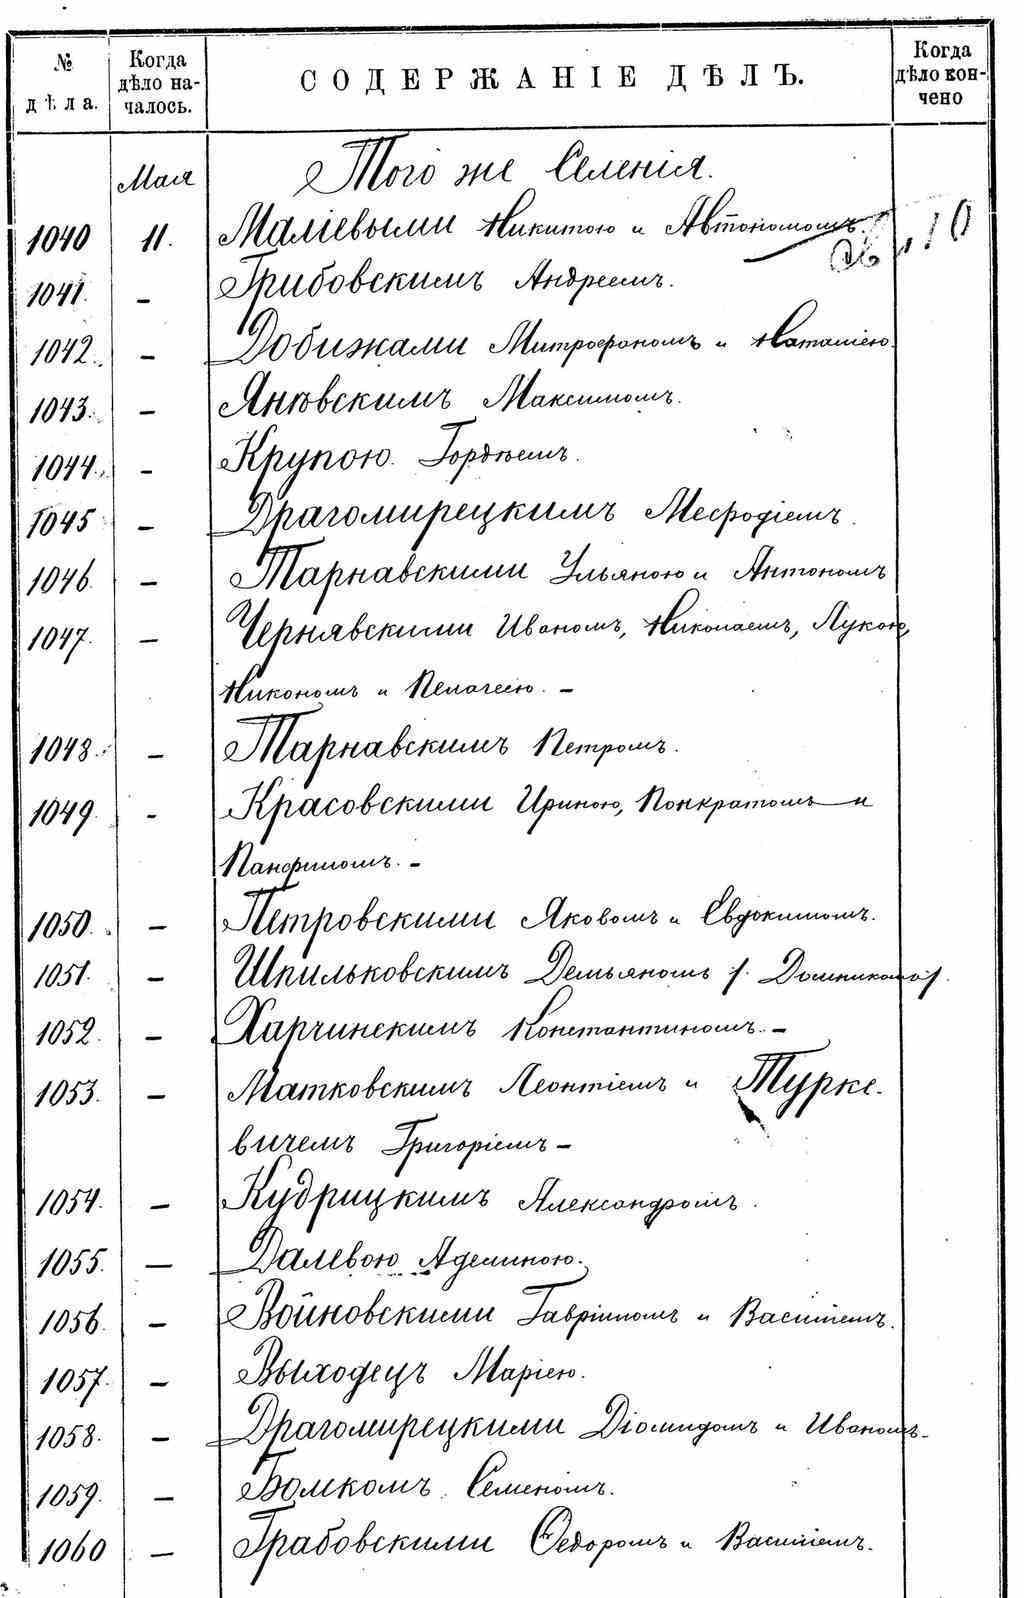 № дѣла.
Когда дѣло на-
чалось.
СОДЕРЖАНІЕ ДѢЛЪ.
Когда
дѣло кон-
чено
Мая Того же Селенія.
1040 11. Маліевыми Никитою и Автономомъ.
1041. – Грибовскимъ Андреемъ.
1042. – Добижами Митрофаномъ и Наталіею.
1043. – Янѣвскимъ Максимомъ.
1044. – Крупою. Гордѣемъ.
1045 – Драгомирецкимъ Мефодіемъ.
1046. – Тарнавскими Ульяною и Антономъ
1047. – Чернявскими Иваномъ, Николаемъ, Лукою,
Никономъ и Пелагеею. –
1048. – Тарнавскимъ Петромъ.
1049. – Красовскими Ириною, Понкратомъ и
Панфиломъ. –
1050. – Петровскими Яковомъ и Евдокимомъ.
1051. – Шпильковскимъ Демьяномъ /. Домникою/.
1052. – Харчинскимъ Константиномъ. –
1053. – Матковскимъ Леонтіемъ и Турке-
вичемъ Григоріемъ –
1054. – Кудрицкимъ Александромъ.
1055. – Далевою Аделиною.
1056. – Войновскими Гавріиломъ и Василіемъ.
1057. – Выходецъ Маріею.
1058. – Драгомирецкими Діомидомъ и Иваномъ.
1059. – Бомкомъ Семеномъ.
1060 – Грабовскими Ѳедоромъ и Василіемъ.